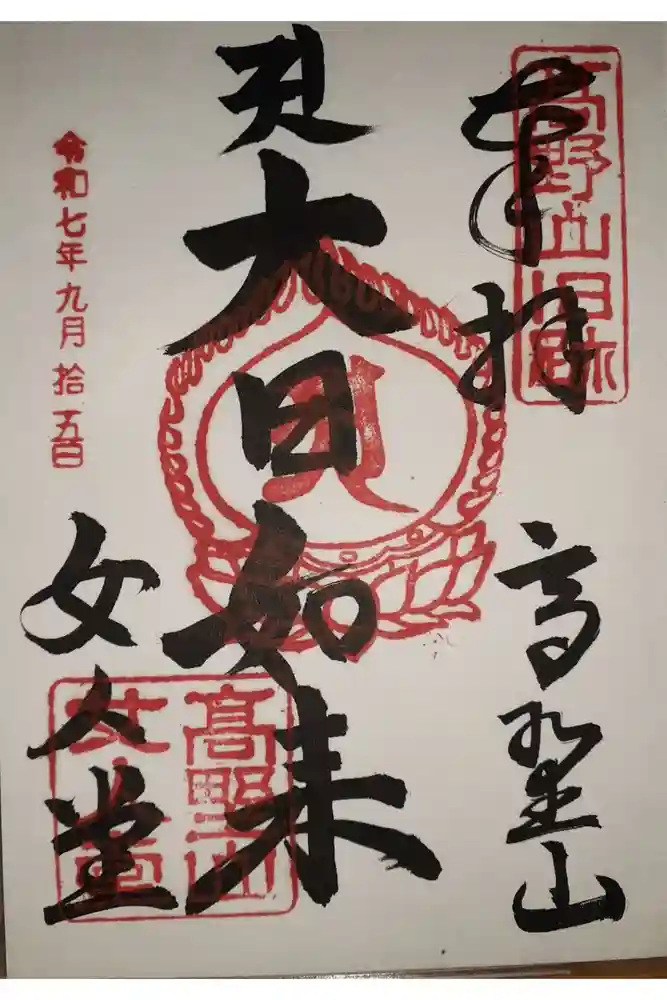 奉拝
高野山
高野山旧跡
大日如来
女人堂
高野山
女人堂
令和七年九月拾五日